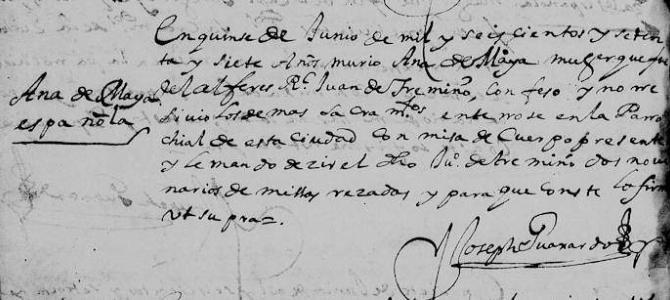 En quinse de Junio de mil y seiscientos y seten
ta y siete Años murio Ana de Maya muger que fue
Ana de Maya
española
del alferes Rl. Juan de Tremiño, confeso y no rre
siuio los demas sacramtos enterrose en la Parro
chial de esta Ciudad con misa de Cuerpo presente
y le mando dezir el dho Ju.o de treminõ dos noue
narios de missas rezadas y para que conste lo firme
vt supra.
Joseph Guaxardo